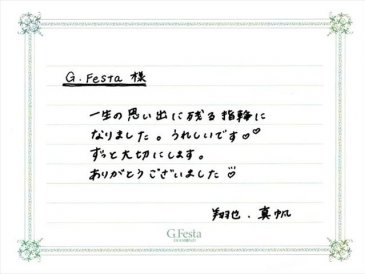 G.Festa 様
一生の思い出に残る指輪に
なりました。うれしいです♡♡
ずっと大切にします。
ありがとうございました♡
翔也・真帆
G.Festa